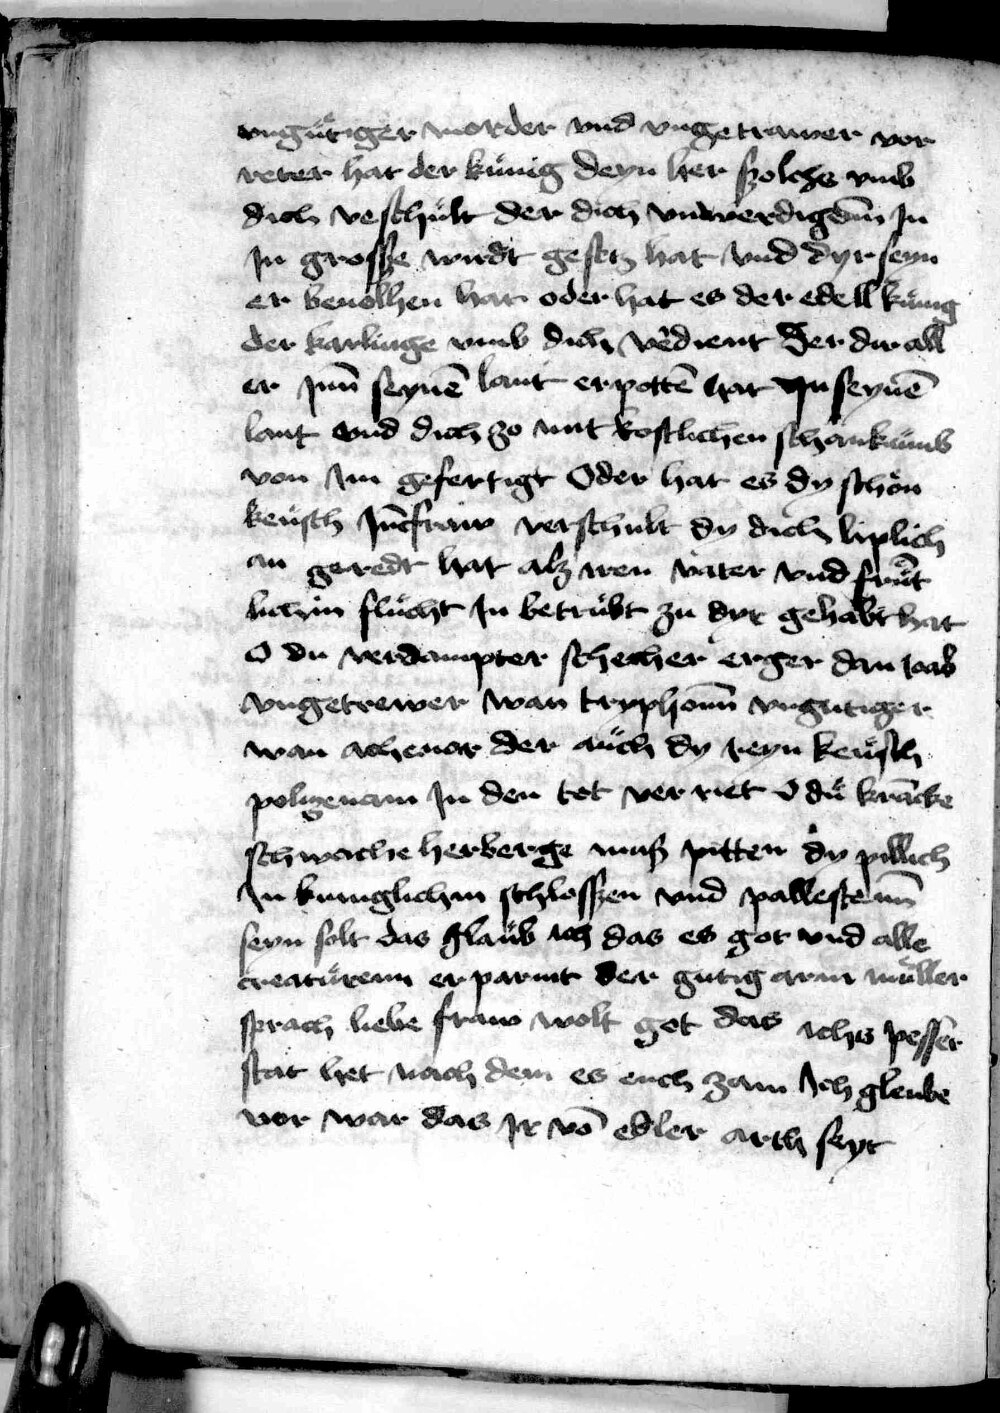 vngüttiger morder vnd vngetrawer vor
reter hat der künig deyn her szolchs vmb
dich veschült der dich vnwerdigēm In
In grosße wirdt gesetz hat vnd dyr seyn
er beuolhen hat oder hat es der edell künig
der karlinge vmb dich vērdient Der dir all
er Inn̄ seynē lant erpottē hat In seynē
lant vnd dich zo mit kostlichen schankūmb
von Im gefertigt Oder hat es dy schön
keüsch Jūcfraw verschult dy dich liplich
an geredt hat alz iren vater vnd frünt
lichin flücht In betrübt zu dyr gehabt hat
O du verdampter schecher erger dan ioab
vngetrewer wan tryphonn̄ vngutiger
wan athenor der auch dy reyn keüsch
poligenam In den tot verriet O dü krācke
schwache herberge muß pitten dy pillich
In kuniglichm schlosßen vnd pallestenn̄
seyn solt das glaüb ich das es got vnd alle
creatürenn erparmt der gutig arm müller
sprach liebe fraw wolt got das ichs pesser
stat het nach dem es euch zam Ich gleube
vor war das Ir vō edler arth seyt